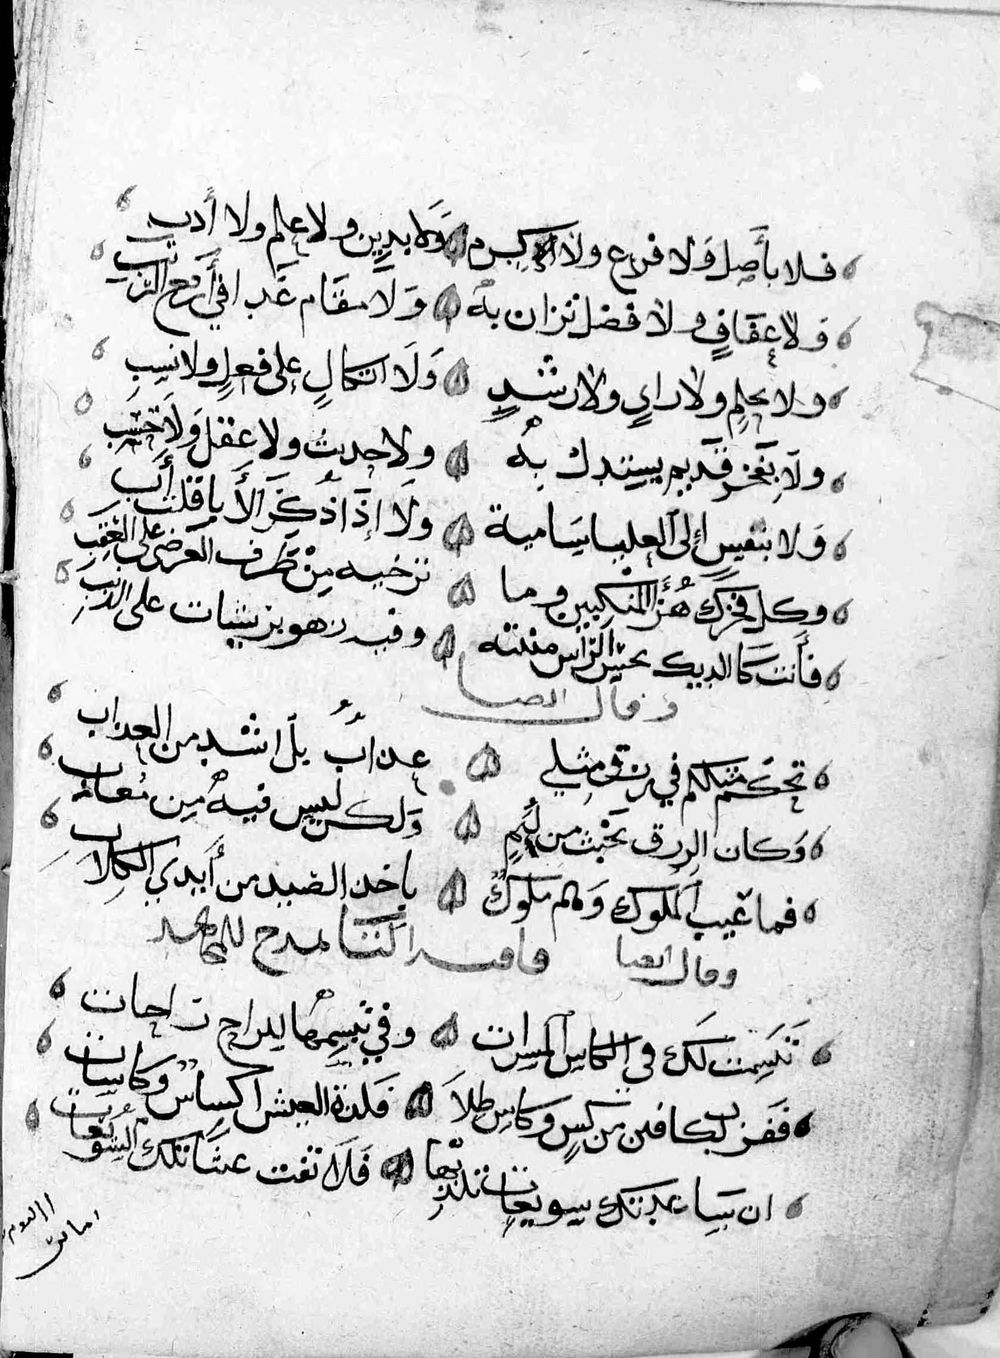 فلا بأصل ولا فرع ولا كرم ولا بدين ولا علم ولا أدب
ولا عفاف ولا فضل تزان به ولا مقام غدا في أرفع الرتب
ولا بحلم ولا راي ولا رشد ولا اتكال على فعل ولا نسب
ولا بفخر قديم يستدل به ولا حديث ولا عقل ولا حسب
ولا بنفس إلى العليا سامية ولا إذا ذكر الأبا قلت أب
وكل فخرك هز المنكبين وما ترخيه من طرف العرضي على العقب
فأنت كالديك بحش الرأس منتنه وفيه زهو بريشات على الذنب
وقال ايضا
تحكم مثلكم في رزق مثلي عذاب بل اشد من العذاب
وكان الرزق بحث من لئم ولكن ليس فيه من معاب
فما عيب الملوك وهم ملوك باخذ الصيد من أيدي الكلاب
وقال ايضا قافية التا يمدح
تبسمت لك في الكاس المسرات وفي تبسمها للراح راحات
ففز بكافين من كس وكاس طلا فلذة العيش اكساس وكاسات
ان ساعدتك سويعات تلذ بها فلا تفت عشا تلك السويعات